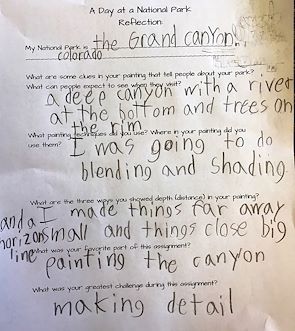 A Day at a National Park
Reflection:
My National Park is the Grand canyon
colorado
What are some clues in your painting that tell people about your park?
What can people expect to see when they visit?
a deep canyon with a river
at the bottom and trees on
the rim
What painting techniques did you use? Where in your painting did you
use them? I was going to do
blending and shading.
What are the three ways you showed depth (distance) in your painting?
and a I made things far away
horizon small and things close big
line
What was your favorite part of this assignment?
painting the canyon
What was your greatest challenge during this assignment?
making detail